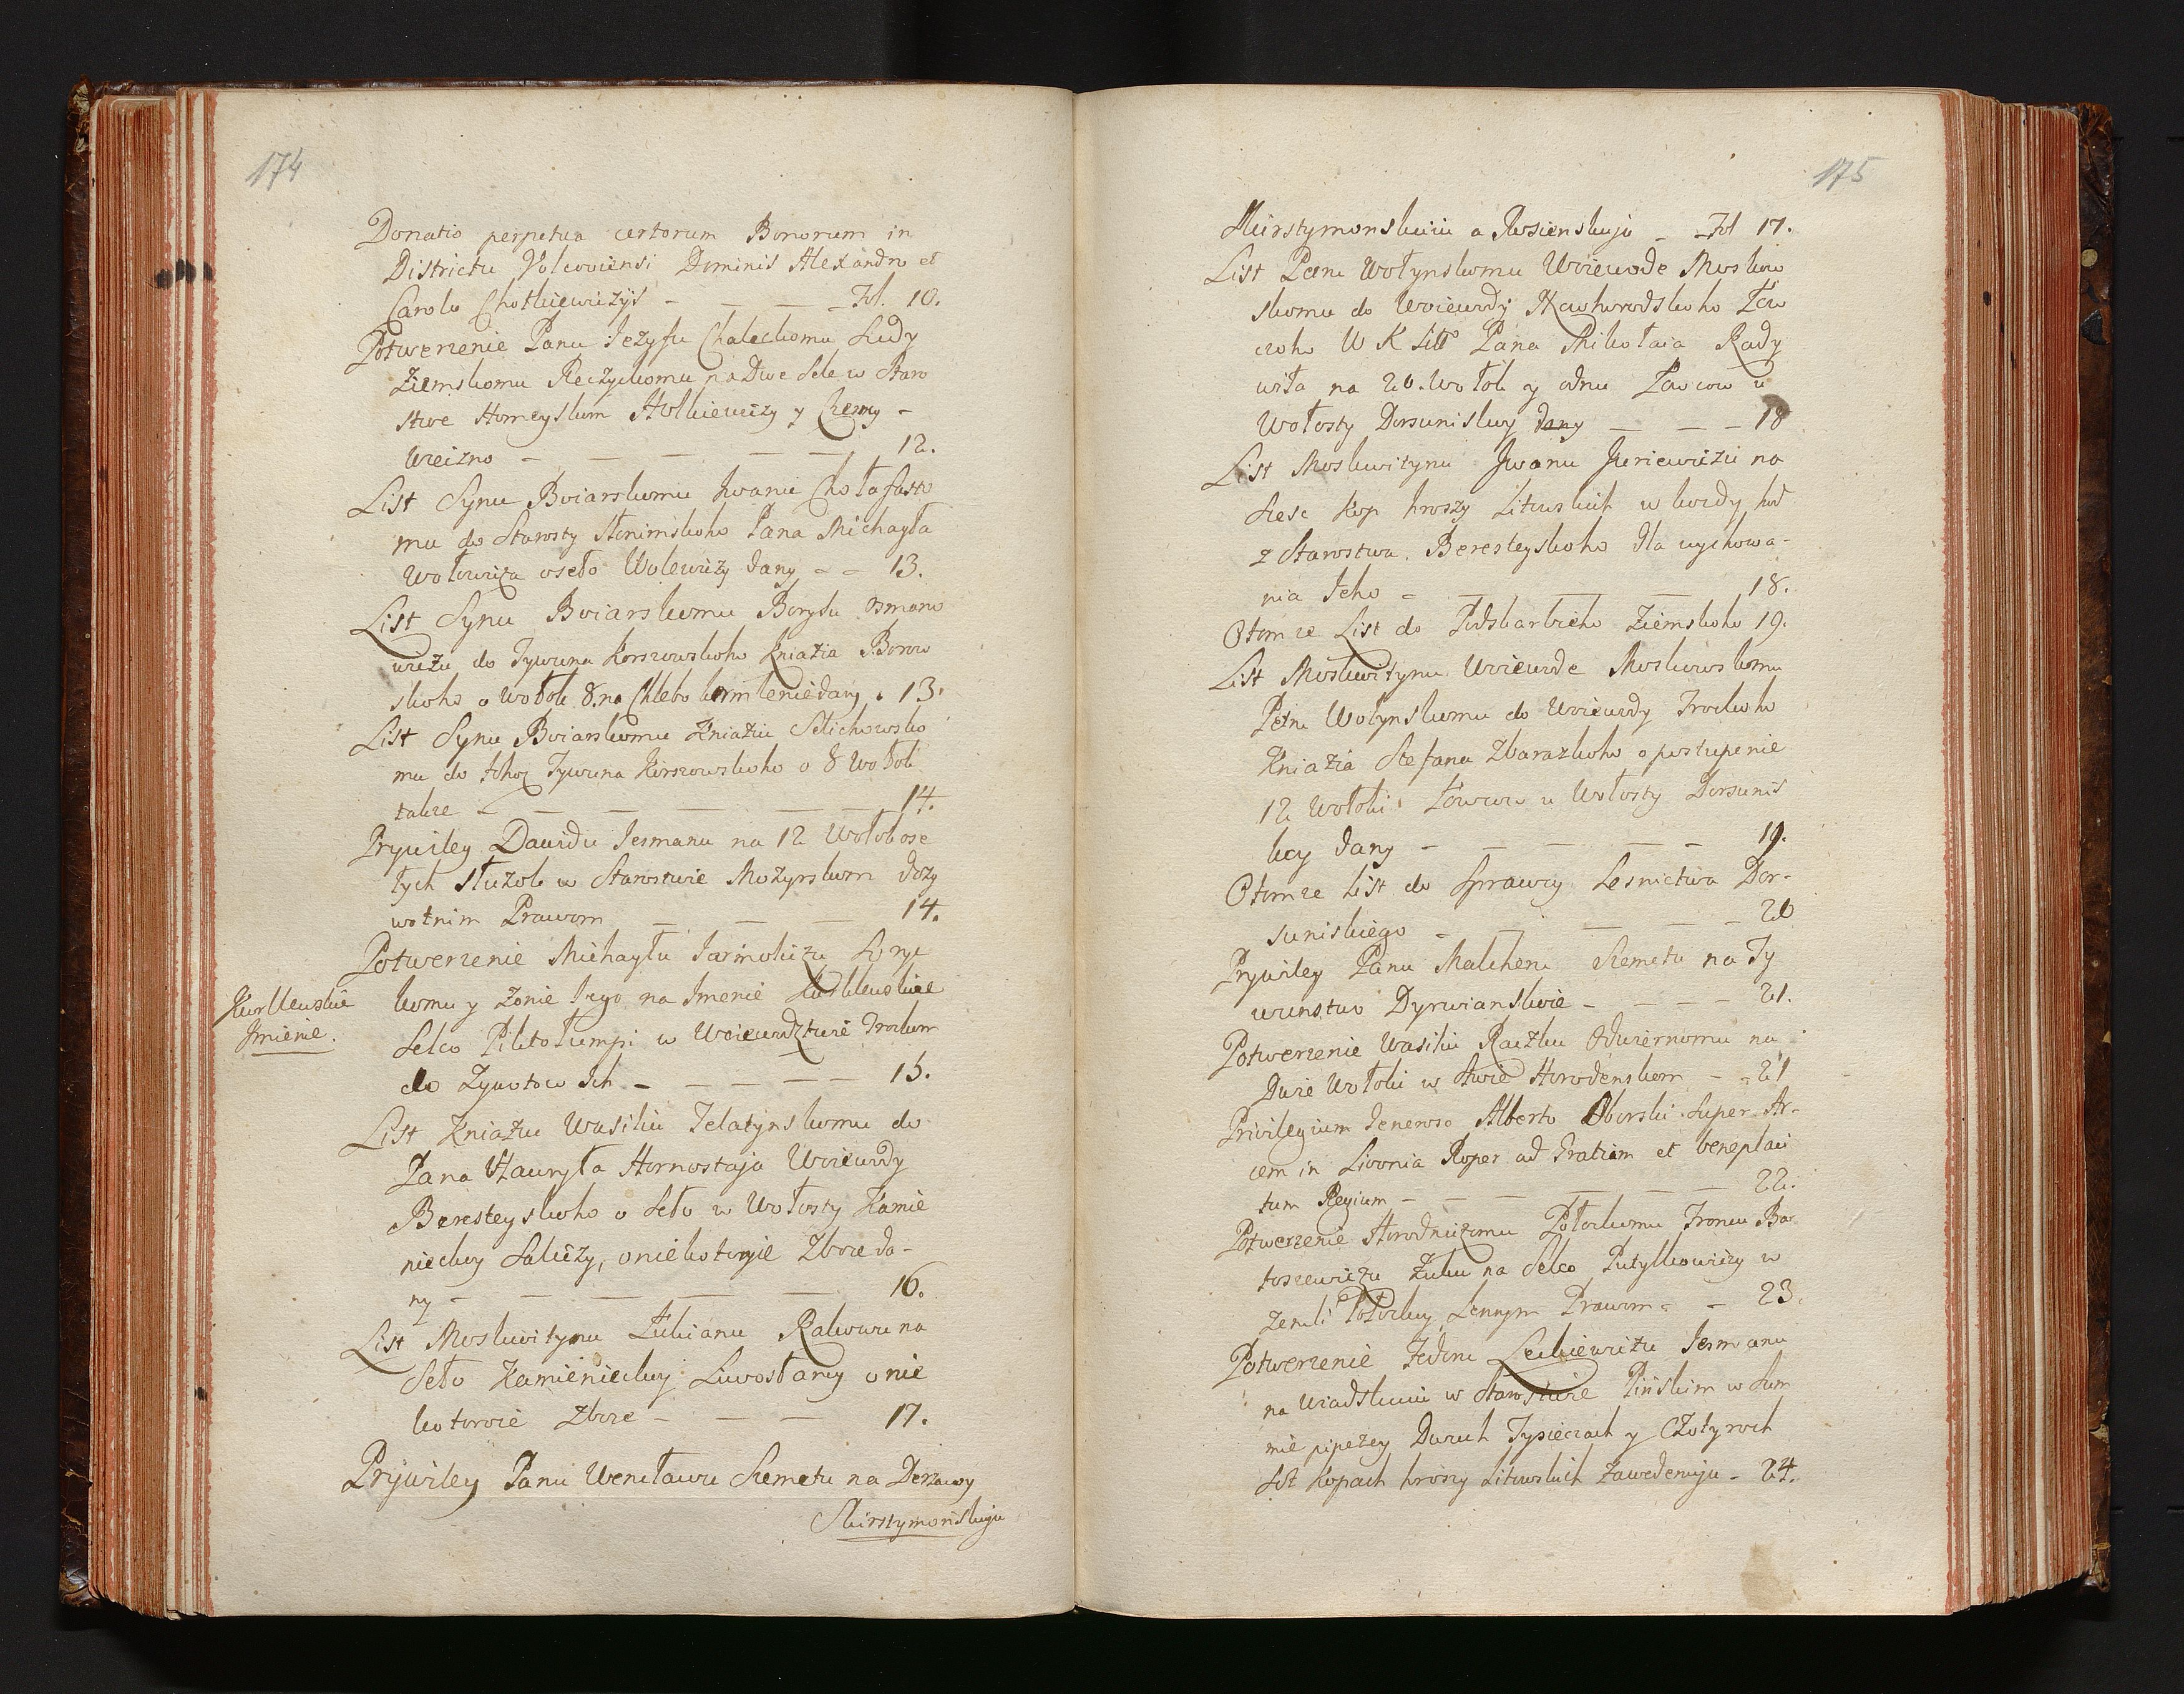 174
Donatio perpetua certorum Bonorum in
Districtu Volcovicensi Dominis Alexandro et
Carolo Chotkiewiczijs - Fol. 10.
Potwerzenie Panu Jezyfu Chaleckomu Sudy
Ziemskomu Reczyckomu na Dwe Sele w Staro
stwe Homeyskum Holkiewiczy y Chemy -
Wreizno - 12.
List Synu Boiarskomu Iwanu Chołafasto
mu do Starosty Słonimskoho Pana Michayła
Wołowiza o seło Wolewiczy dany - - 13.
List Synu Boiarskomu Borysu Osmano
wiczu do Tywuna Korszowskoho Kniazia Borow
skoho o Wołok 8. na Chlebo kormlenie dany. 13.
List Synu Boiarskomu Kniaziu Selichowsko
mu do tohoz Tywuna Korszowskoho o 8 Wołok
takze - 14.
Prywiley Dawidu Jesmanu na 12 Wołok ose
łych służob w Starostwie Mozyrskom dozy
wotnim Prawom - 14.
Potwerzenie Michayłu Jarmoliczu Lsryc
komu y Zonie Jego na Imenie Kurklewskie
Kurklewskie
Imienie.
Selco Piktołumpi w Woiewodztwie Trockom
do Zywotow Ich - 15.
List Kniaziu Wasiliu Telatynskomu do
Pana Hawryła Hornostaja Woiewody
Beresteyskoho o Seło w Wołosty Kamie
nieckoy Saliczy, o niekotoryie Zboze da-
ny - 16.
List Moskwitynu Łukianu Rakowu na
Seło Kamienieckoy Suwosłany o nie
kotoroie Zboze - 17.
Prijwiley Panu Wencławu Szemetu na Derzawy
Skirstymonskuju
175
Skirstymonskuiu a Rosienskuju - Fol 17.
List Petru Wołynskomu Woiewode Moskow
skomu do Woiewody Nawhorodskoho Łow
czoho W K Litt Pana Mikołaia Rady
wiła na 20. Wołok y odnu Zawcow u
Wołosty Dorsuniskoy dany - 18
List Moskwitynu Jwanu Juriewiczu na
Szesc Kop hroszy Litowskich w kozdy hod
z Starostwa Beresteyskoho dla wychowa-
nia Jeho - 18.
O tomze List do Podskarbieho Ziemskoho 19.
List Moskwitynu Woiewode Moskowskomu
Petru Wołynskomu do Woiewody Trockoho
Kniazia Stefana Zbarazkoho o postupenie
12 Wołoki Zawcow u Wołosty Dorsunis
koy dany - 19.
O tomze List do Sprawcy Lesnictwa Dor-
suniskiego - 20
Prywiley Panu Malcheru Szemetu na Ty
wunstwo Dyrwianskoie - 21.
Potwerzenie Wasiliu Raczku Odwiernomu na
Dwie Wołoki w Stwie Horodenskom - 21
Privilegium Generoso Alberto Oborski super Ar-
cem in Livonia Roper ad Gratiam et beneplaci
tum Regium - 22.
Potwerzenie Horodniczomu Połockomu Fronu Bar
toszewiczu Zuku na Selco Putylkowiczy w
Zemli Połockoy Lennym Prawom - 23.
Potwerzenie Fedoru Leckiewiczu Jesmanu
na Wiadskuiu w Starostwie Pińskim w Sum
mie pipezey Dwuch Tysieczach y Czotyroch
Sot Kopach hroszy Litowskich Zawedenuju - 24.